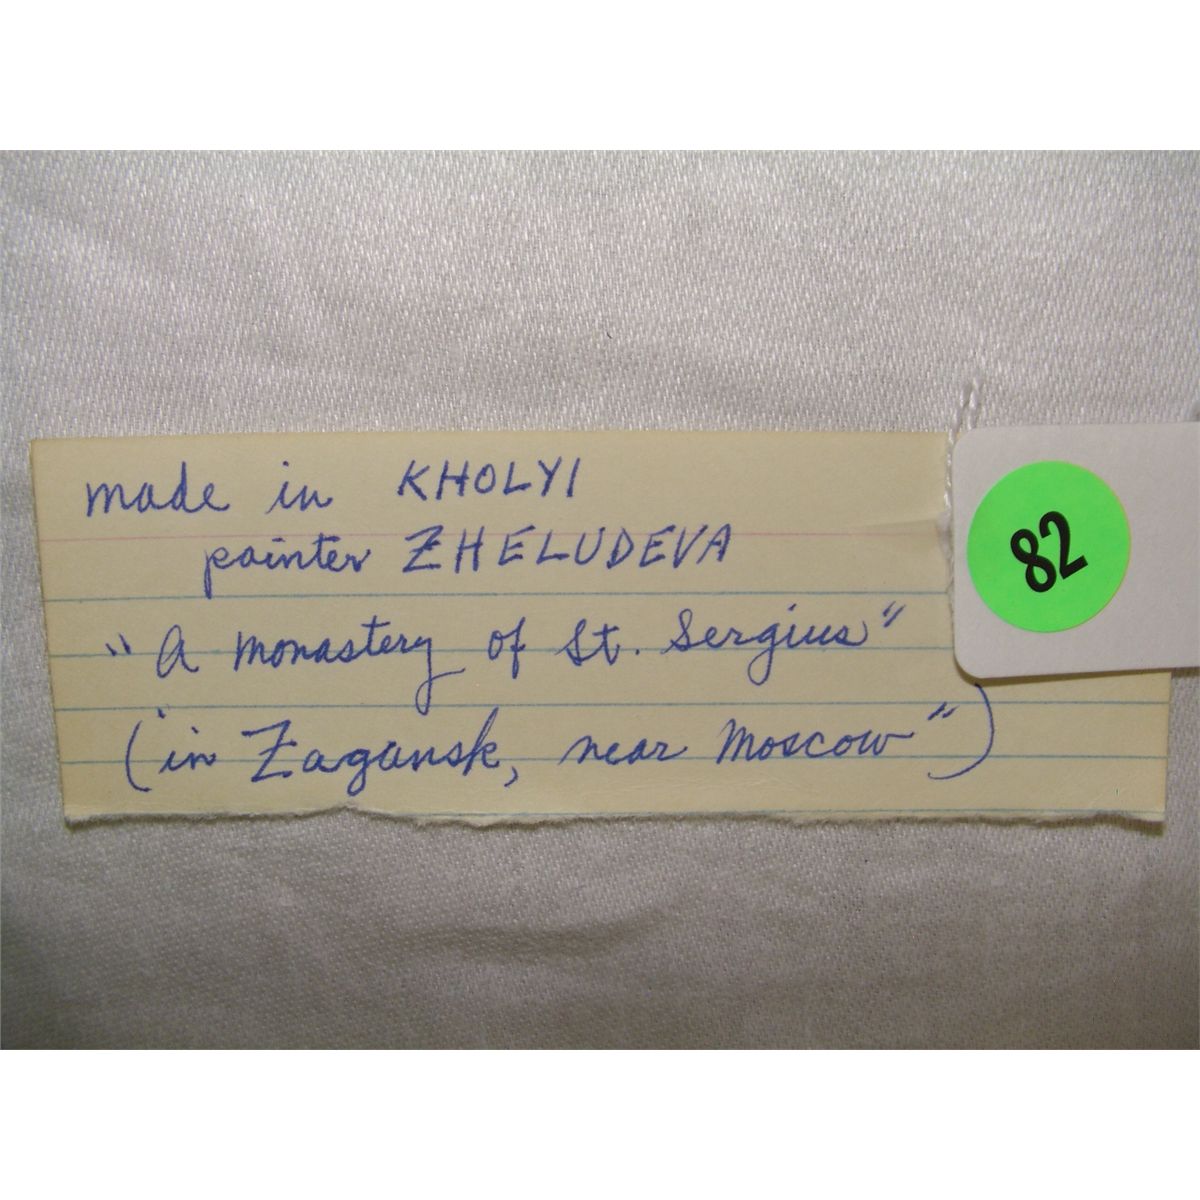 made in KHOLYI
painter ZHELUDEVA
"A monastery of St. Sergius"
("in Zagansk, near Moscow")
82